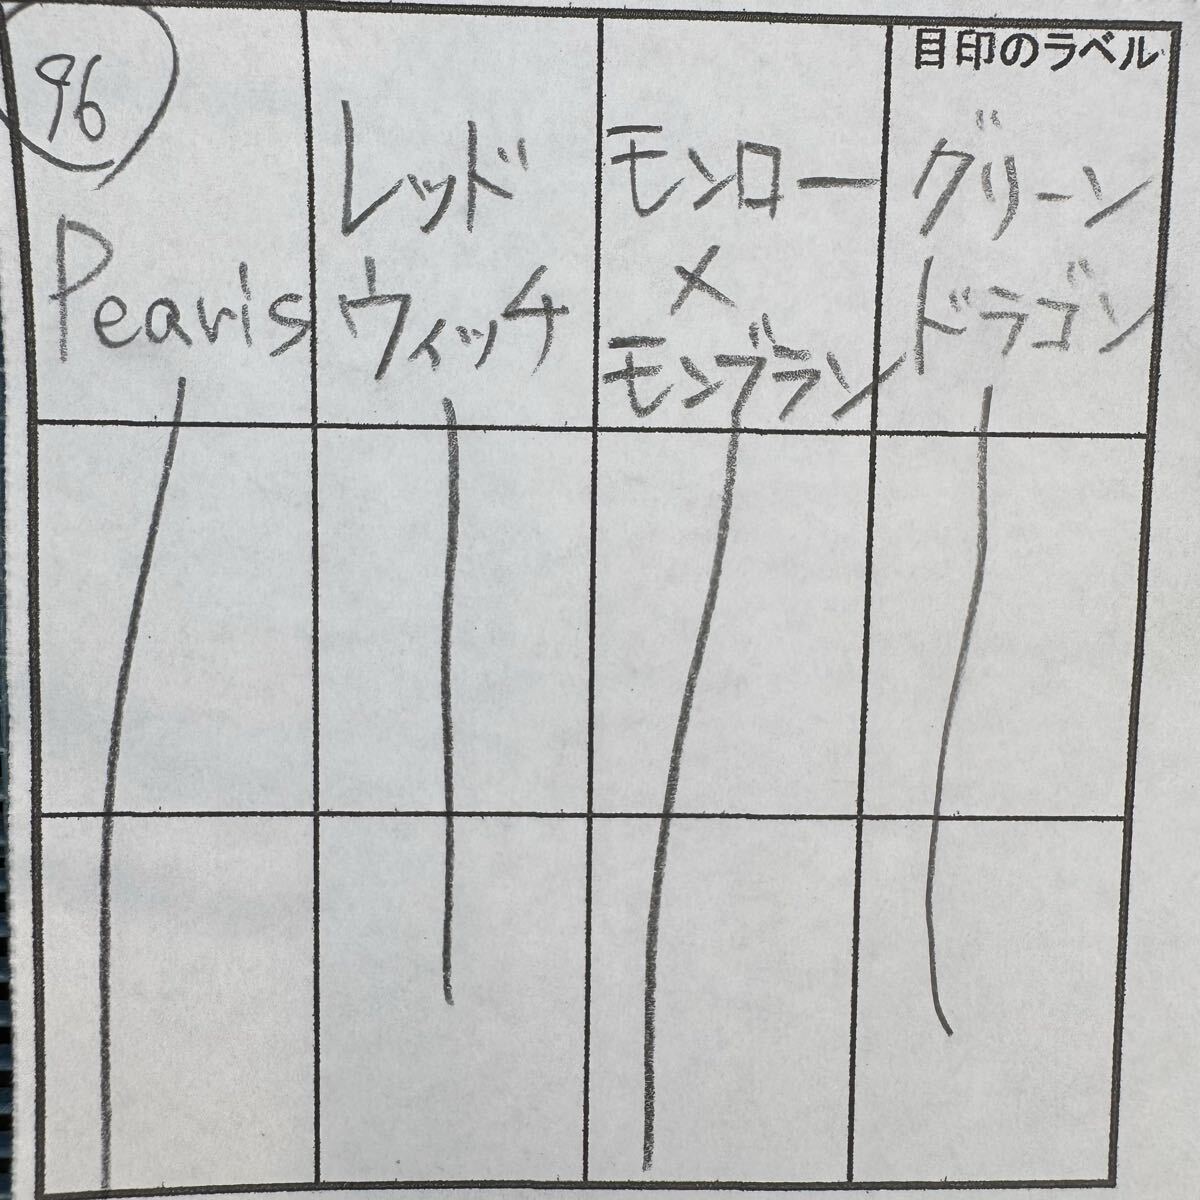 96
Pearis
レッド
ウィッチ
モンロー
×
モンブラン
目印のラベル
グリーン
ドラゴン